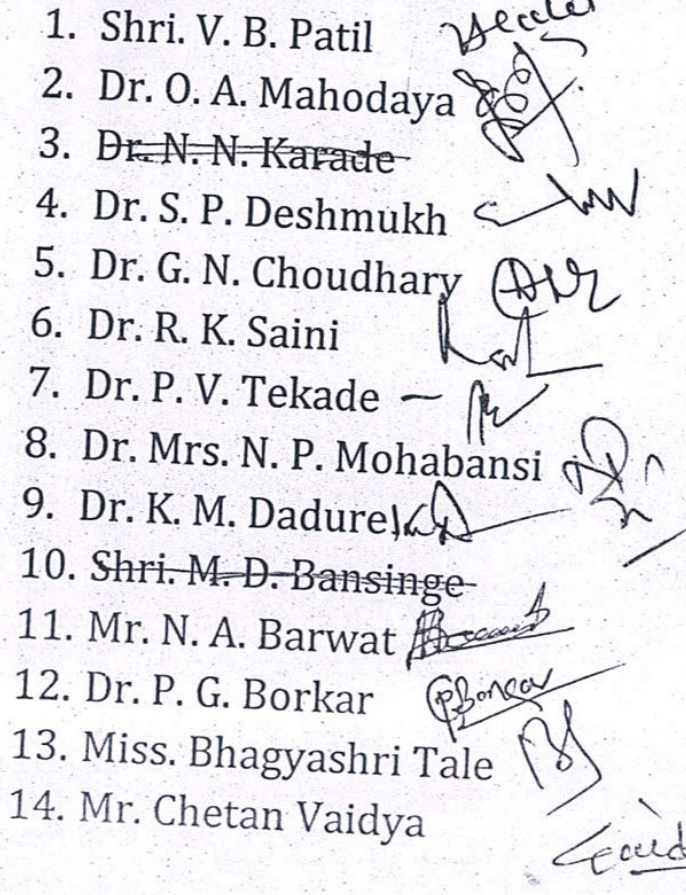 1. Shri. V. B. Patil
2. Dr. O. A. Mahodaya
3. Dr. N. N. Karade
4. Dr. S. P. Deshmukh
5. Dr. G. N. Choudhary
6. Dr. R. K. Saini
7. Dr. P. V. Tekade –
8. Dr. Mrs. N. P. Mohabansi
9. Dr. K. M. Dadure
10. Shri. M. D. Bansinge
11. Mr. N. A. Barwat
12. Dr. P. G. Borkar
13. Miss. Bhagyashri Tale
14. Mr. Chetan Vaidya